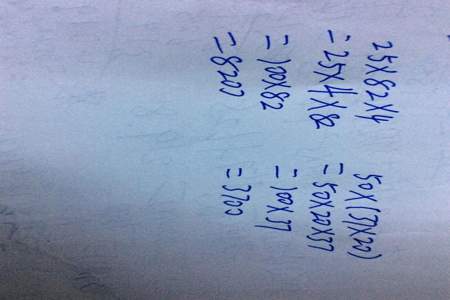 25×82×4
=25×4×82
=100×82
=8200
50×(37×20)
=50×20×37
=100×37
=3700